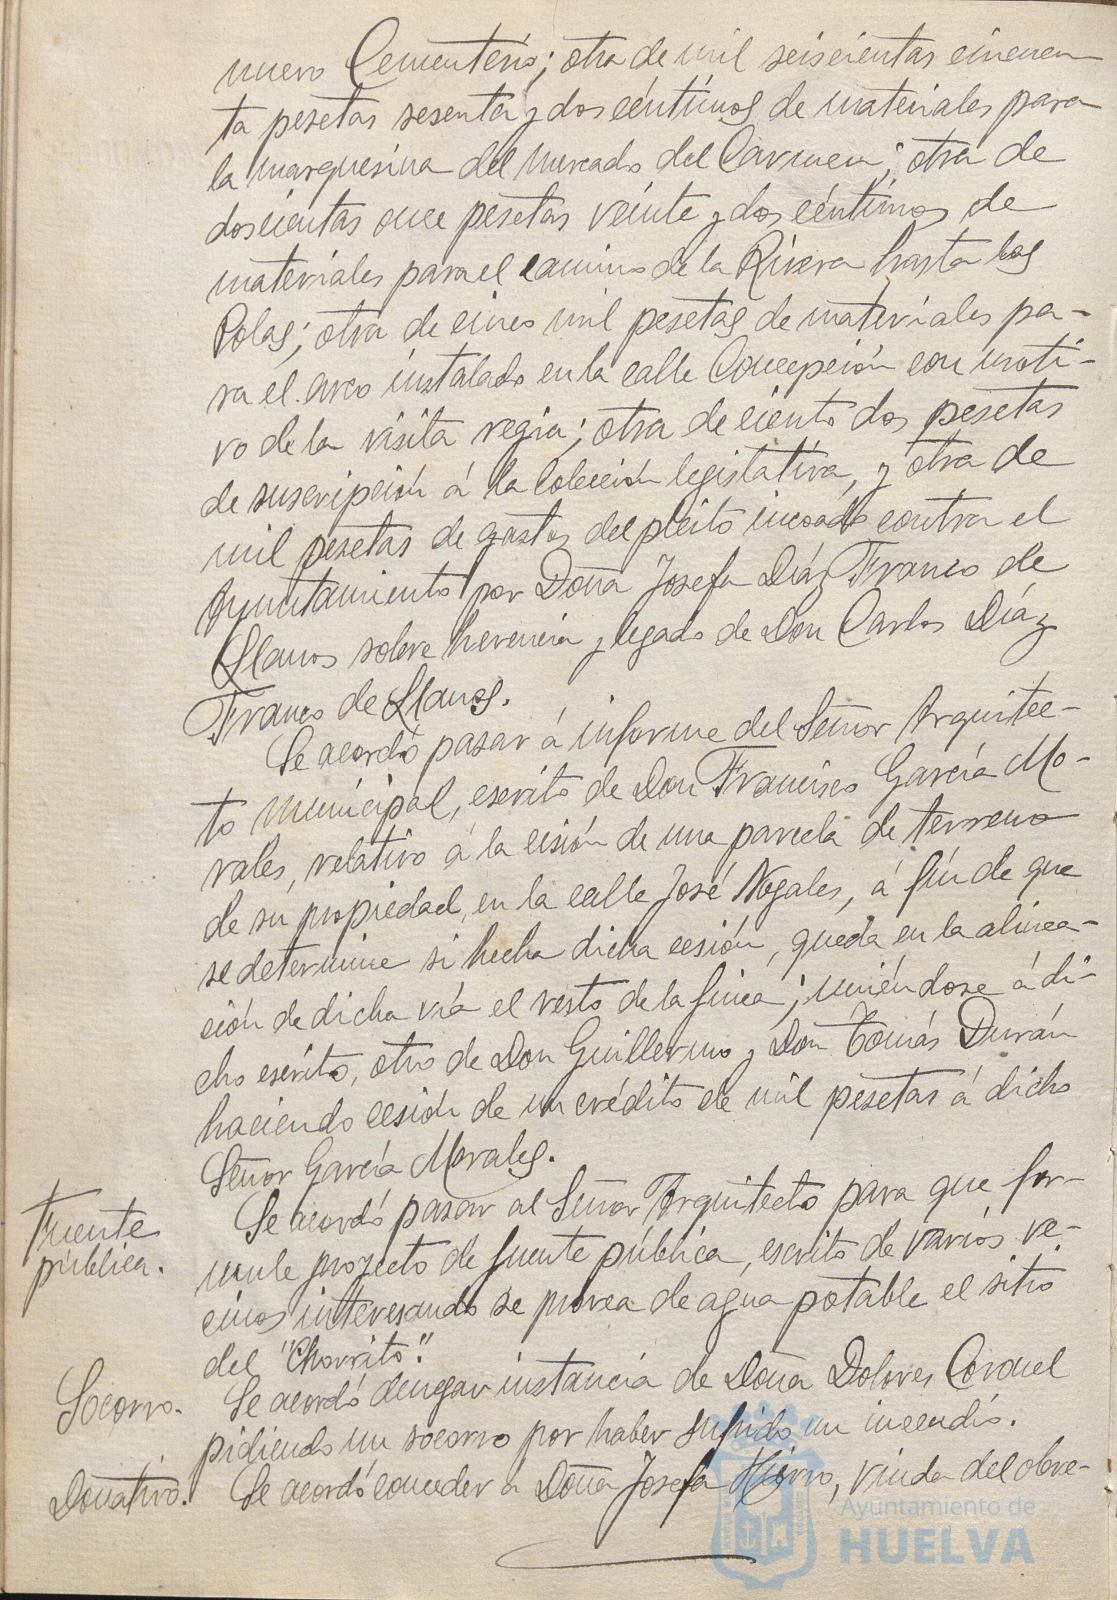 nuevo Cementerio; otra de mil seiscientas cincuen-
ta pesetas sesenta y dos céntimos de materiales para
la marquesina del mercado del Carmen; otra de
doscientas once pesetas veinte y dos céntimos de
materiales para el camino de la Rivera hasta las
Colas; otra de cinco mil pesetas de materiales pa-
ra el arco instalado en la calle Concepción con moti-
vo de la visita regia; otra de ciento dos pesetas
de suscripción á la Colección legislativa, y otra de
mil pesetas de gastos del pleito incoado contra el
Ayuntamiento por Doña Josefa Díaz Franco de
Llanos sobre herencia y legado de Don Carlos Díaz
Franco de Llanos.
Se acordó pasar á informe del Señor Arquitec-
to municipal, escrito de Don Francisco García Mo-
rales, relativo á la cisión de una parcela de terreno
de su propiedad, en la calle José Nogales, á fín de que
se determine si hecha dicha cesión, queda en la alinea-
ción de dicha vía el resto de la finca; uniéndose á di-
cho escrito, otro de Don Guillermo y Don Tomás Durán
haciendo cesión de un crédito de mil pesetas á dicho
Señor García Morales.
Fuente
pública.
Se acordó pasar al Señor Arquitecto para que for-
mule proyecto de fuente pública, escrito de varios ve-
cinos interesando se provea de agua potable el sitio
del "Chorrito".
Socorro.
Se acordó denegar instancia de Doña Dolores Coronel
pidiendo un socorro por haber sufrido un incendio.
Donativo.
Se acordó conceder á Doña Josefa Hierro, viuda del obre-
Ayuntamiento de
HUELVA